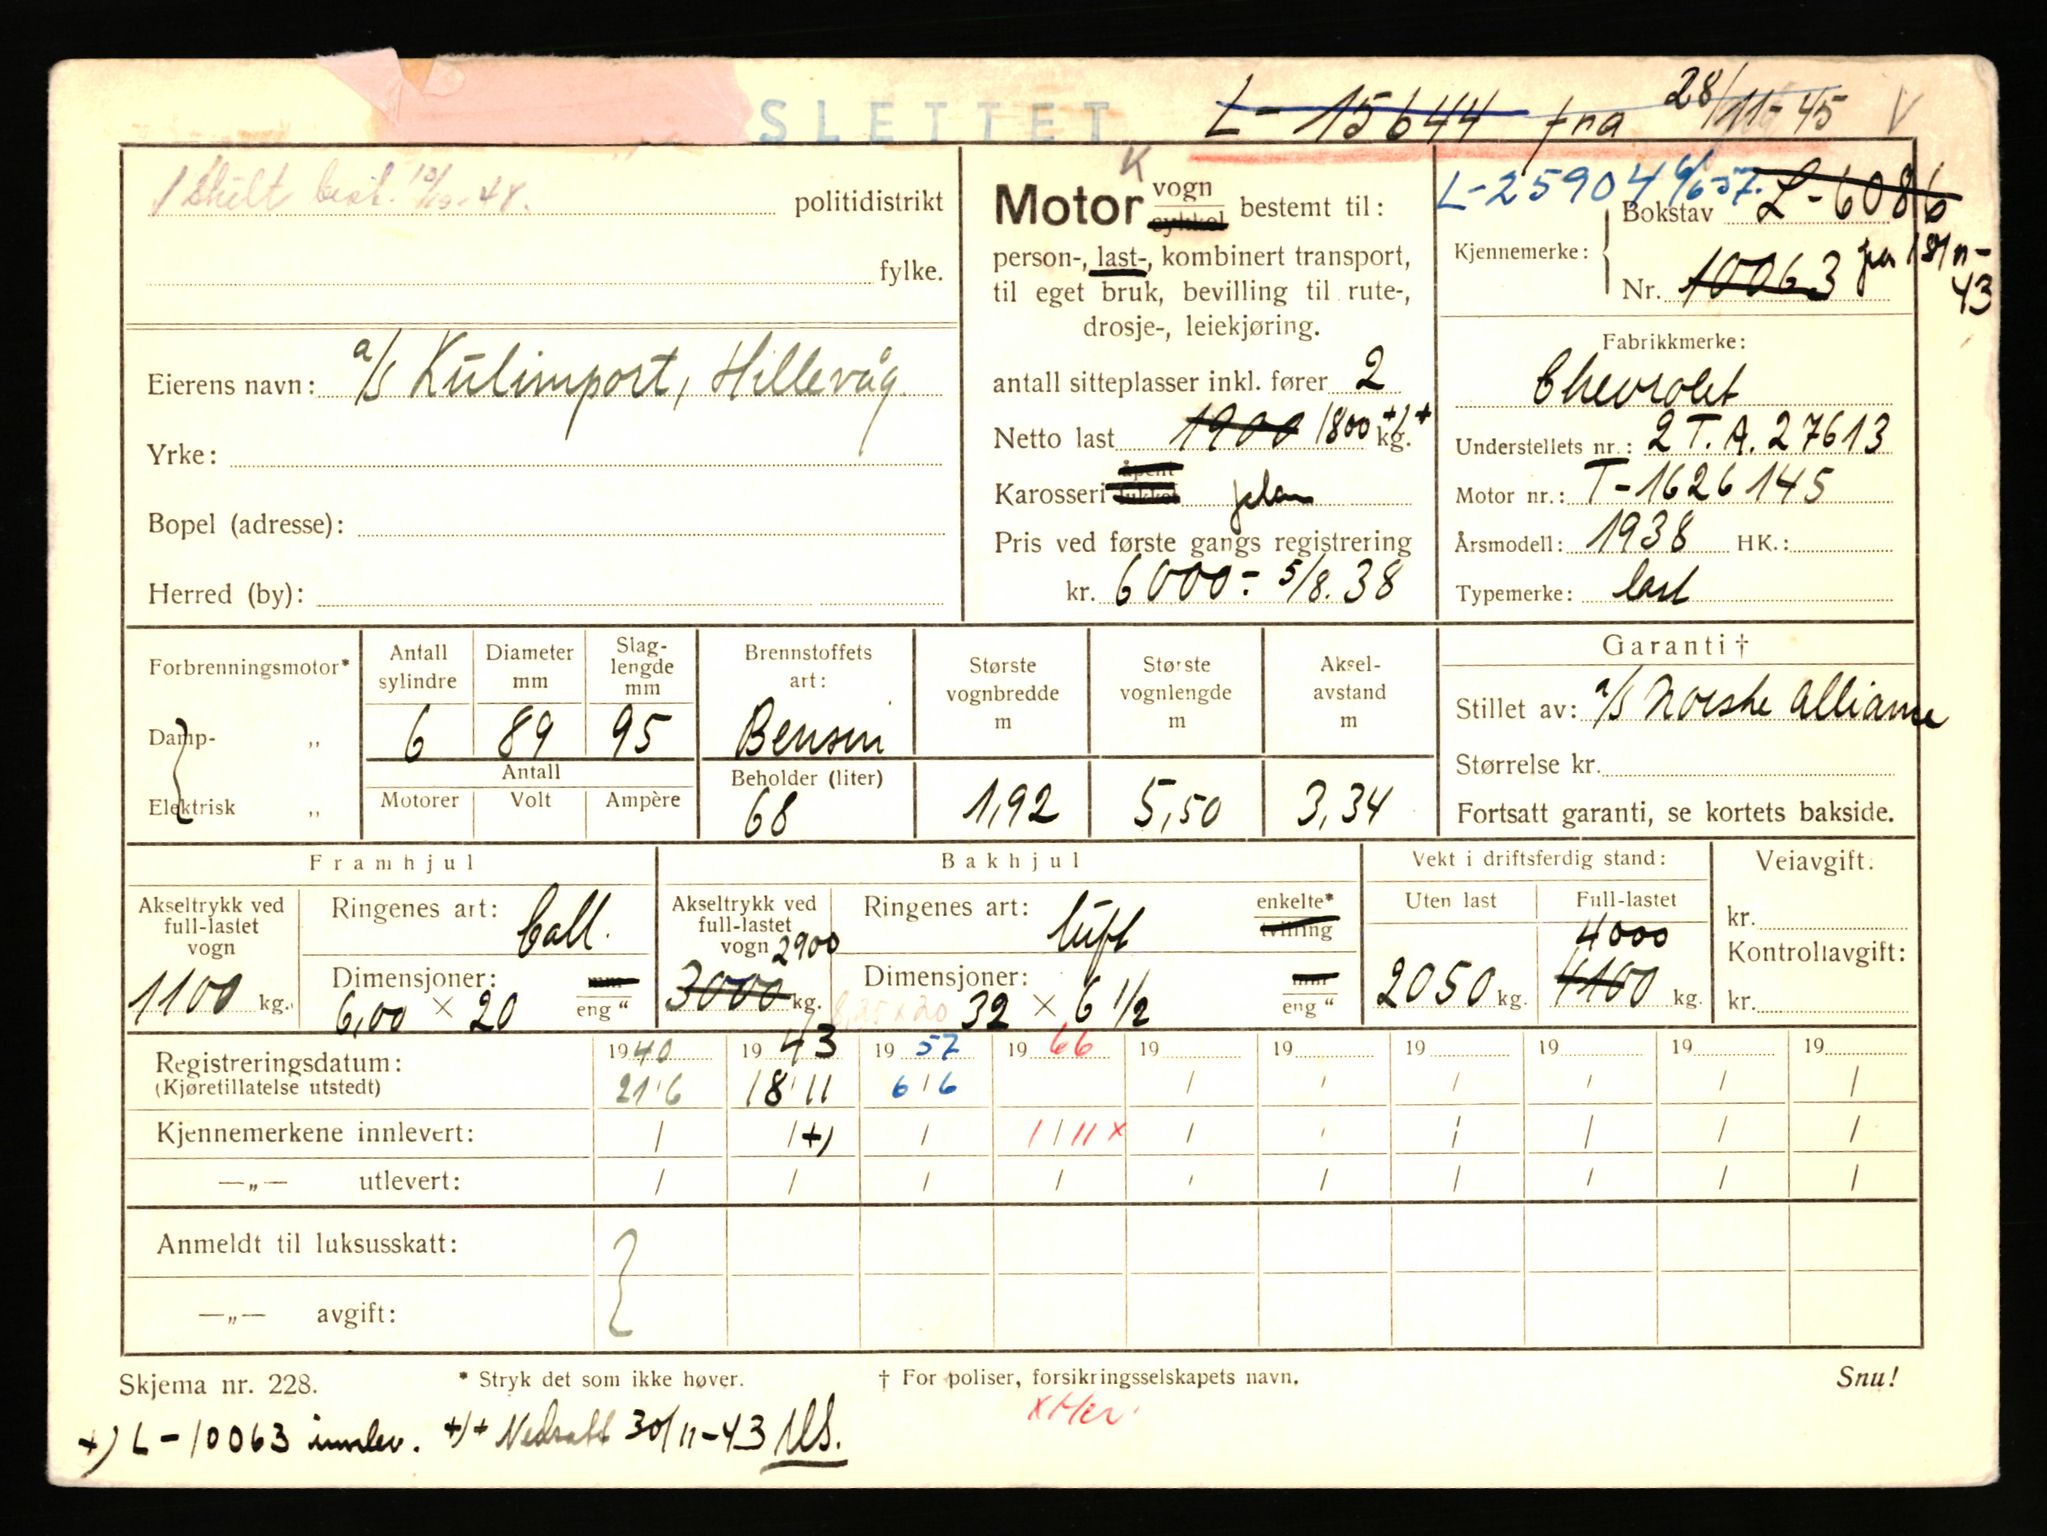 SLETTET L-15644 fra 28/11-45 V
1 skilt best. 10/9-48. politidistrikt
fylke.
Eierens navn: a/s Kulimport, Hillevåg
Yrke:
Bopel (adresse):
Herred (by):
K
Motor vogn sykkel bestemt til:
person-, last-, kombinert transport,
til eget bruk, bevilling til rute-,
drosje-, leiekjøring.
antall sitteplasser inkl. fører 2
Netto last 1900 1800 kg. +)+
Karosseri åpent lukket plan
Pris ved første gangs registrering
kr. 6000:- 5/8. 38
L-25904 6/6-57. L-6086
Kjennemerke: Bokstav
Nr. 10063 fra 18/11-43
Fabrikkmerke:
Chevrolet
Understellets nr.: 2 T.A. 27613
Motor nr.: T-1626145
Årsmodell: 1938 HK.:
Typemerke: last
Forbrenningsmotor*
Damp- „
Elektrisk „
Antall sylindre 6
Diameter mm 89
Slag-lengde mm 95
Antall
Motorer Volt Ampère
Brennstoffets art: Bensin
Beholder (liter) 68
Største vognbredde m 1,92
Største vognlengde m 5,50
Aksel-avstand m 3,34
Garanti †
Stillet av: a/s Norske Alliance
Størrelse kr.
Fortsatt garanti, se kortets bakside.
Framhjul
Akseltrykk ved full-lastet vogn
1100 kg.
Ringenes art: ball.
Dimensjoner: mm
6,00 × 20 eng “
Bakhjul
Akseltrykk ved full-lastet vogn 2900
3000 kg.
Ringenes art: luft enkelte* tvilling
Dimensjoner: mm
8,25 x 20 32 × 6 1/2 eng “
Vekt i driftsferdig stand:
Uten last Full-lastet
4000
2050 kg. 4100 kg.
Veiavgift:
kr.
Kontrollavgift:
kr.
Registreringsdatum: 1940 1943 1957 1966 19 19 19 19 19 19
(Kjøretillatelse utstedt) 21/6 18/11 6/6 / / / / / /
Kjennemerkene innlevert: / / +) / 1/11 x / / / / / /
—„— utlevert: / / / / / / / / / /
Anmeldt til luksusskatt:
—„— avgift:
Skjema nr. 228. * Stryk det som ikke høver. † For poliser, forsikringsselskapets navn. Snu!
+) L-10063 innlev. +)+ Nedsatt 30/11-43